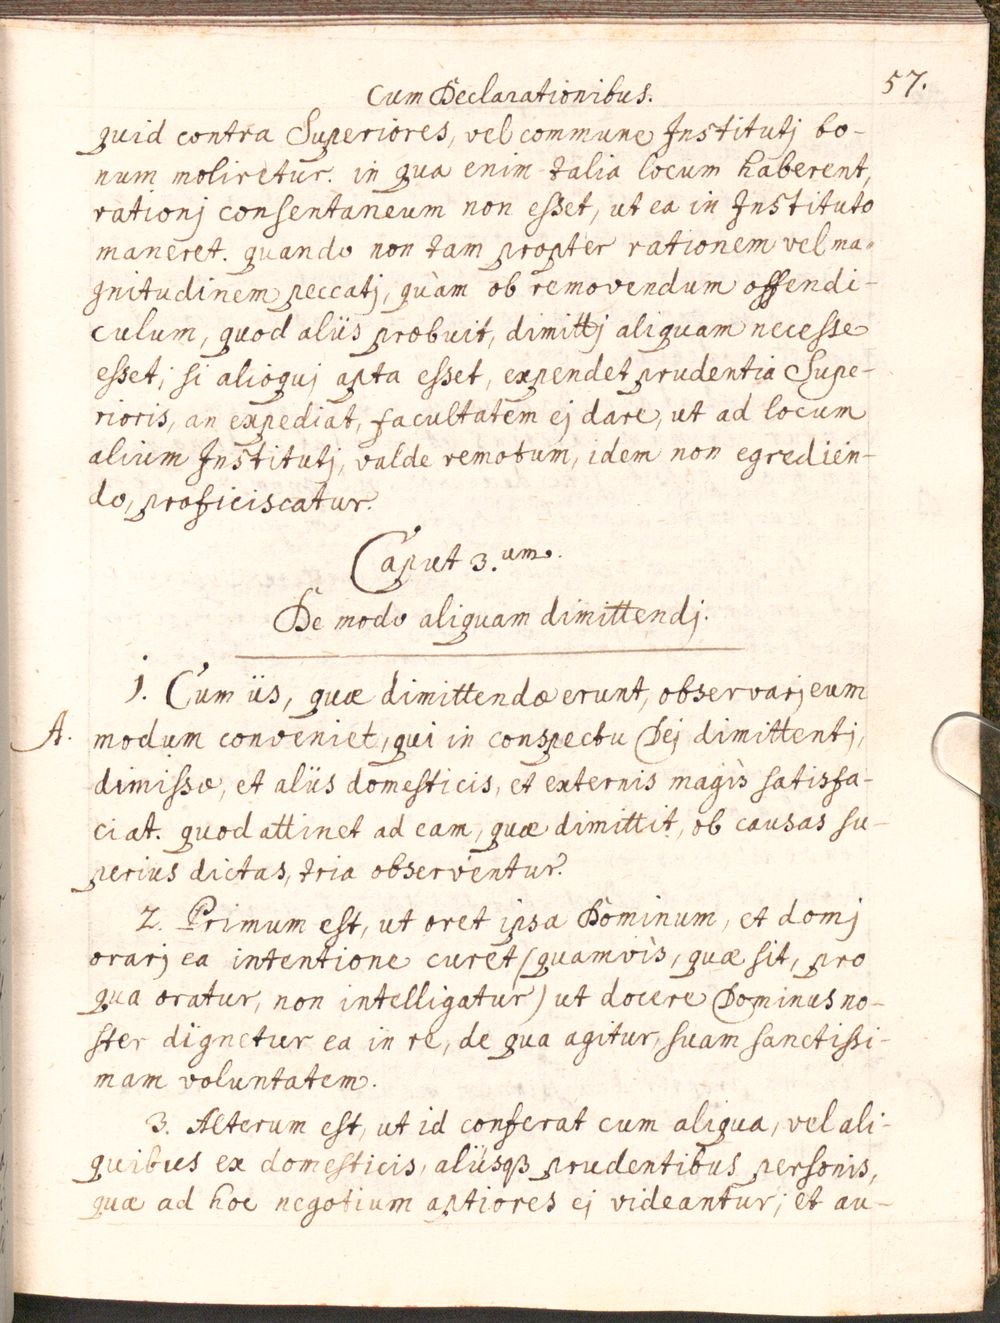 Cum Declarationibus.
57.
quid contra Superiores, vel commune Institutj bo-
num moliretur. in qua enim talia locum haberent,
rationj consentaneum non esset, ut ea in Instituto
maneret. quando non tam propter rationem vel ma-
gnitudinem peccatj, quàm ob removendum offendi-
culum, quod aliis præbuit, dimittj aliquam necesse
esset; si alioquj apta esset, expendet prudentia Supe-
rioris, an expediat, facultatem ej dare, ut ad locum
alium Institutj, valde remotum, idem non egredien-
do, proficiscatur.
Caput 3.um.
De modo aliquam dimittendj.
1. Cum iis, quæ dimittendæ erunt, observarj eum
A.
modum conveniet, qui in conspectu Dej dimittentj,
dimissæ, et aliis domesticis, et externis magìs satisfa-
ciat. quod attinet ad eam, quæ dimittit, ob causas su-
perius dictas, tria observentur.
2. Primum est, ut oret ipsa Dominum, et domj
orarj ea intentione curet (quamvìs, quæ sit, pro
qua oratur, non intelligatur) ut docere Dominus no-
ster dignetur ea in re, de qua agitur, suam sanctissi-
mam voluntatem.
3. Alterum est, ut id conferat cum aliqua, vel ali-
quibus ex domesticis, aliisqз prudentibus personis,
quæ ad hoc negotium aptiores ej videantur; et au-